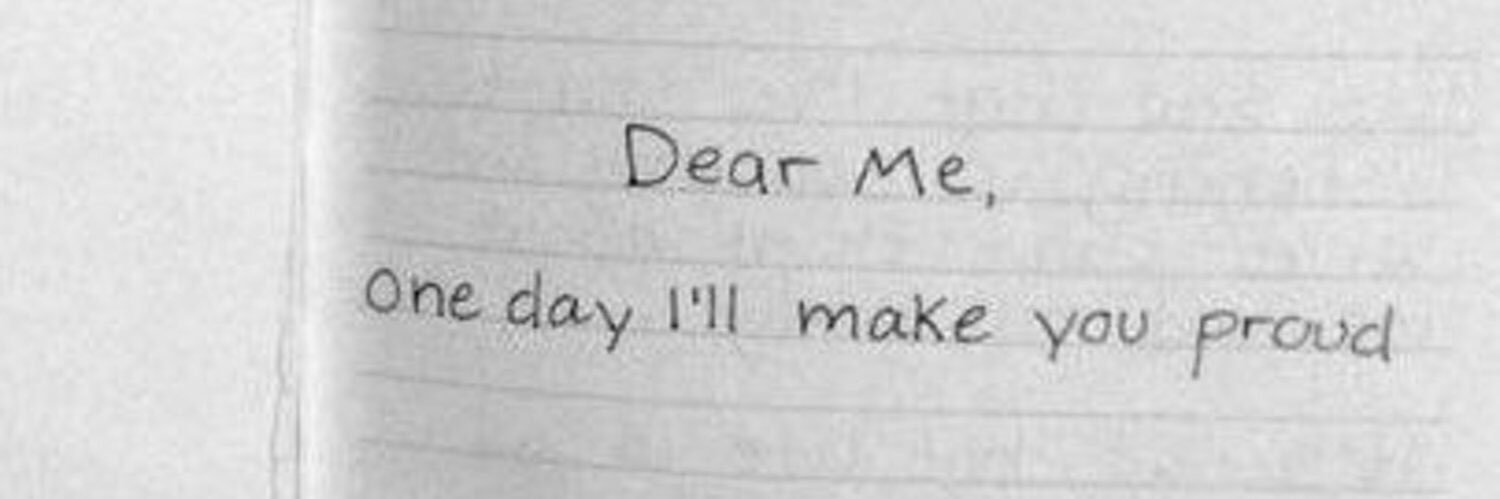 Dear Me,
One day I'll make you proud